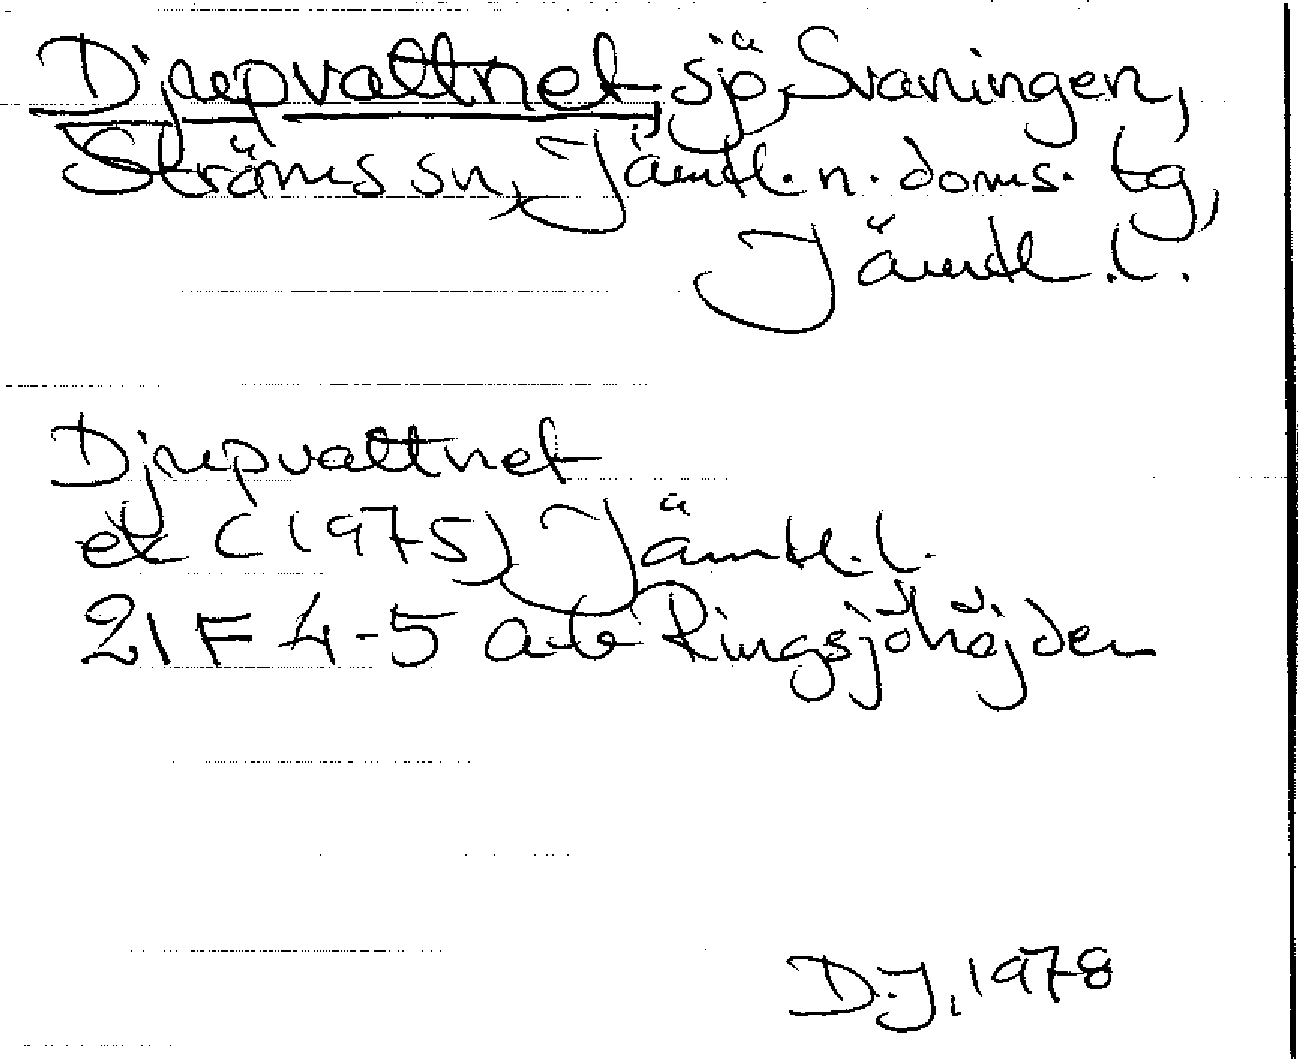 Djupvattnet, sjö, Svaningen,
Ströms sn, Jämtl. n. doms. tg,
Jämtl. l.
Djupvattnet
ek (1975) Jämtl. l.
21 F 4-5 a-b Ringsjöhöjden
D.J, 1978